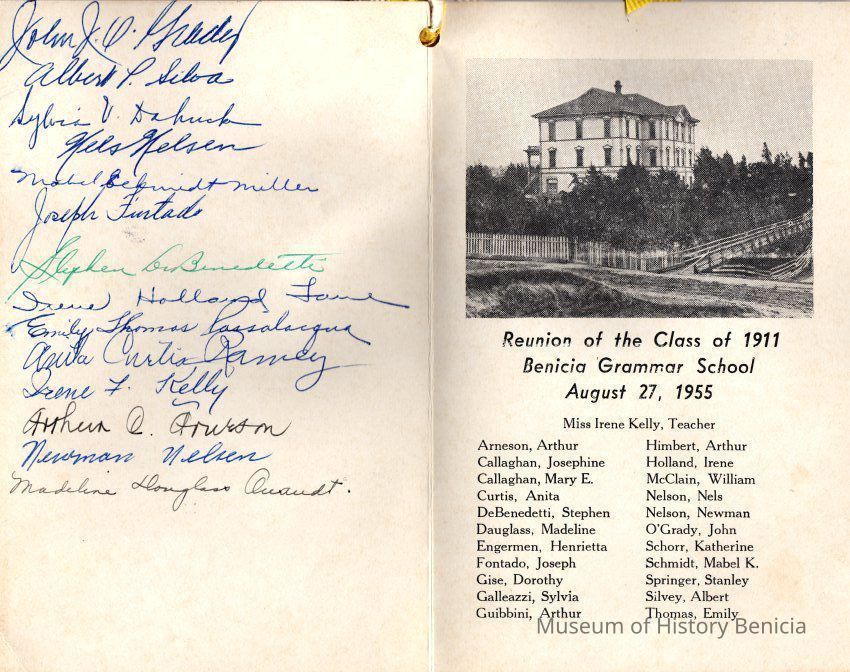 John J. O'Grady
Albert P. Silva
Sylvia V. Dahuck
Nels Nelsen
Mabel Schmidt Miller
Joseph Furtado
Stephen DeBenedetti
Irene Holland
Emily Thomas Passalacqua
Anita Curtis Ramey
Irene F. Kelly
Arthur C. Arneson
Newman Nelsen
Madeline Douglass Quandt.
Reunion of the Class of 1911
Benicia Grammar School
August 27, 1955
Miss Irene Kelly, Teacher
Arneson, Arthur
Callaghan, Josephine
Callaghan, Mary E.
Curtis, Anita
DeBenedetti, Stephen
Dauglass, Madeline
Engermen, Henrietta
Fontado, Joseph
Gise, Dorothy
Galleazzi, Sylvia
Guibbini, Arthur
Himbert, Arthur
Holland, Irene
McClain, William
Nelson, Nels
Nelson, Newman
O'Grady, John
Schorr, Katherine
Schmidt, Mabel K.
Springer, Stanley
Silvey, Albert
Thomas, Emily
Museum of History Benicia